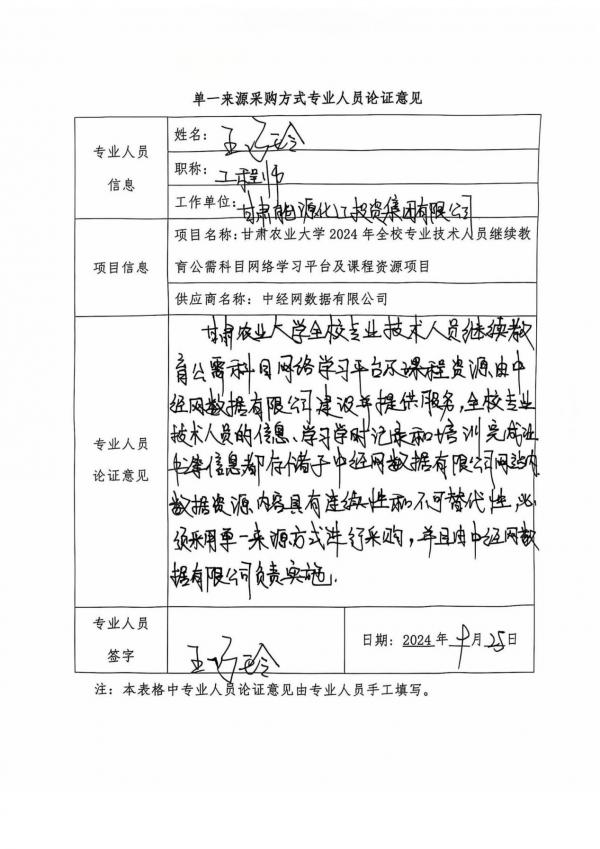 单一来源采购方式专业人员论证意见
专业人员
信息
姓名：王巧玲
职称：工程师
工作单位：甘肃能源化工投资集团有限公司
项目信息
项目名称：甘肃农业大学 2024 年全校专业技术人员继续教
育公需科目网络学习平台及课程资源项目
供应商名称：中经网数据有限公司
专业人员
论证意见
甘肃农业大学全校专业技术人员继续教
育公需科目网络学习平台及课程资源由中
经网数据有限公司建设并提供服务，全校专业
技术人员的信息、学习学时记录和培训完成证
书等信息都存储于中经网数据有限公司网站内
数据资源内容具有连续性和不可替代性，必
须采用单一来源方式进行采购，并且由中经网数
据有限公司负责实施。
专业人员
签字
王巧玲
日期：2024 年 月 25 日
注：本表格中专业人员论证意见由专业人员手工填写。